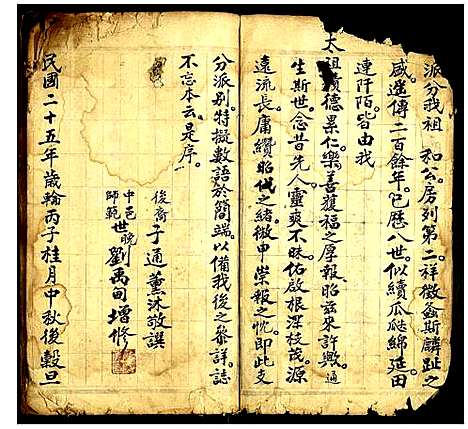 派分我祖　和公房列第二。祥徵螽斯麟趾之
盛。遷傳二百餘年。已歷八世。似續瓜瓞綿延。田
連阡陌。皆由我
太祖積德累仁。樂善獲福之厚報。昭茲來許歟。通
生斯世。念昔先人。靈爽不昧。佑啟根深枝茂。源
遠流長。庸纘昭伐之緒。微申崇報之忱。即此支
分派別。特擬數語於簡端。以備我後之參詳。誌
不忘本云。是序。
後裔子通薰沐敬譔
中邑師範世晚劉禹甸增修
民國二十五年歲輪丙子桂月中秋後穀旦